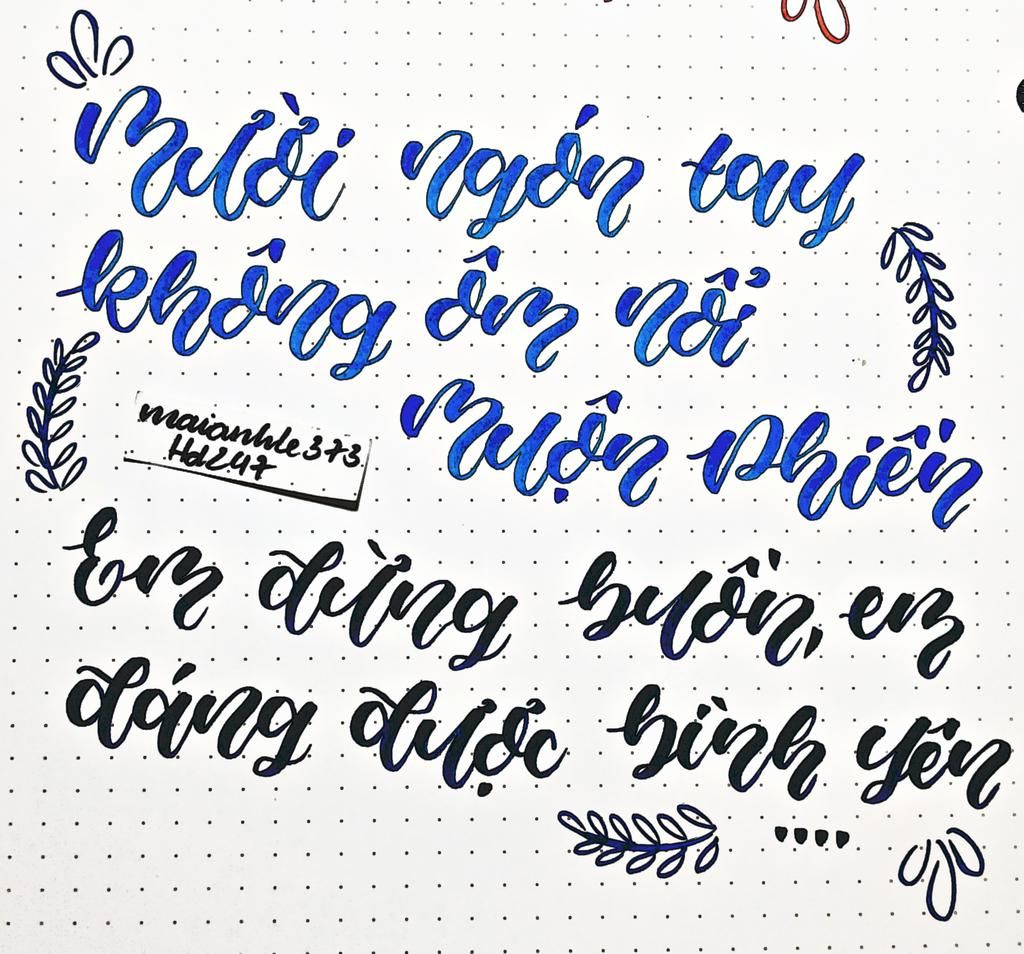 Mười ngón tay
không ôm nổi
Muộn Phiền
maianhle373
Hd247
Em đừng buồn, em
đáng được bình yên
....